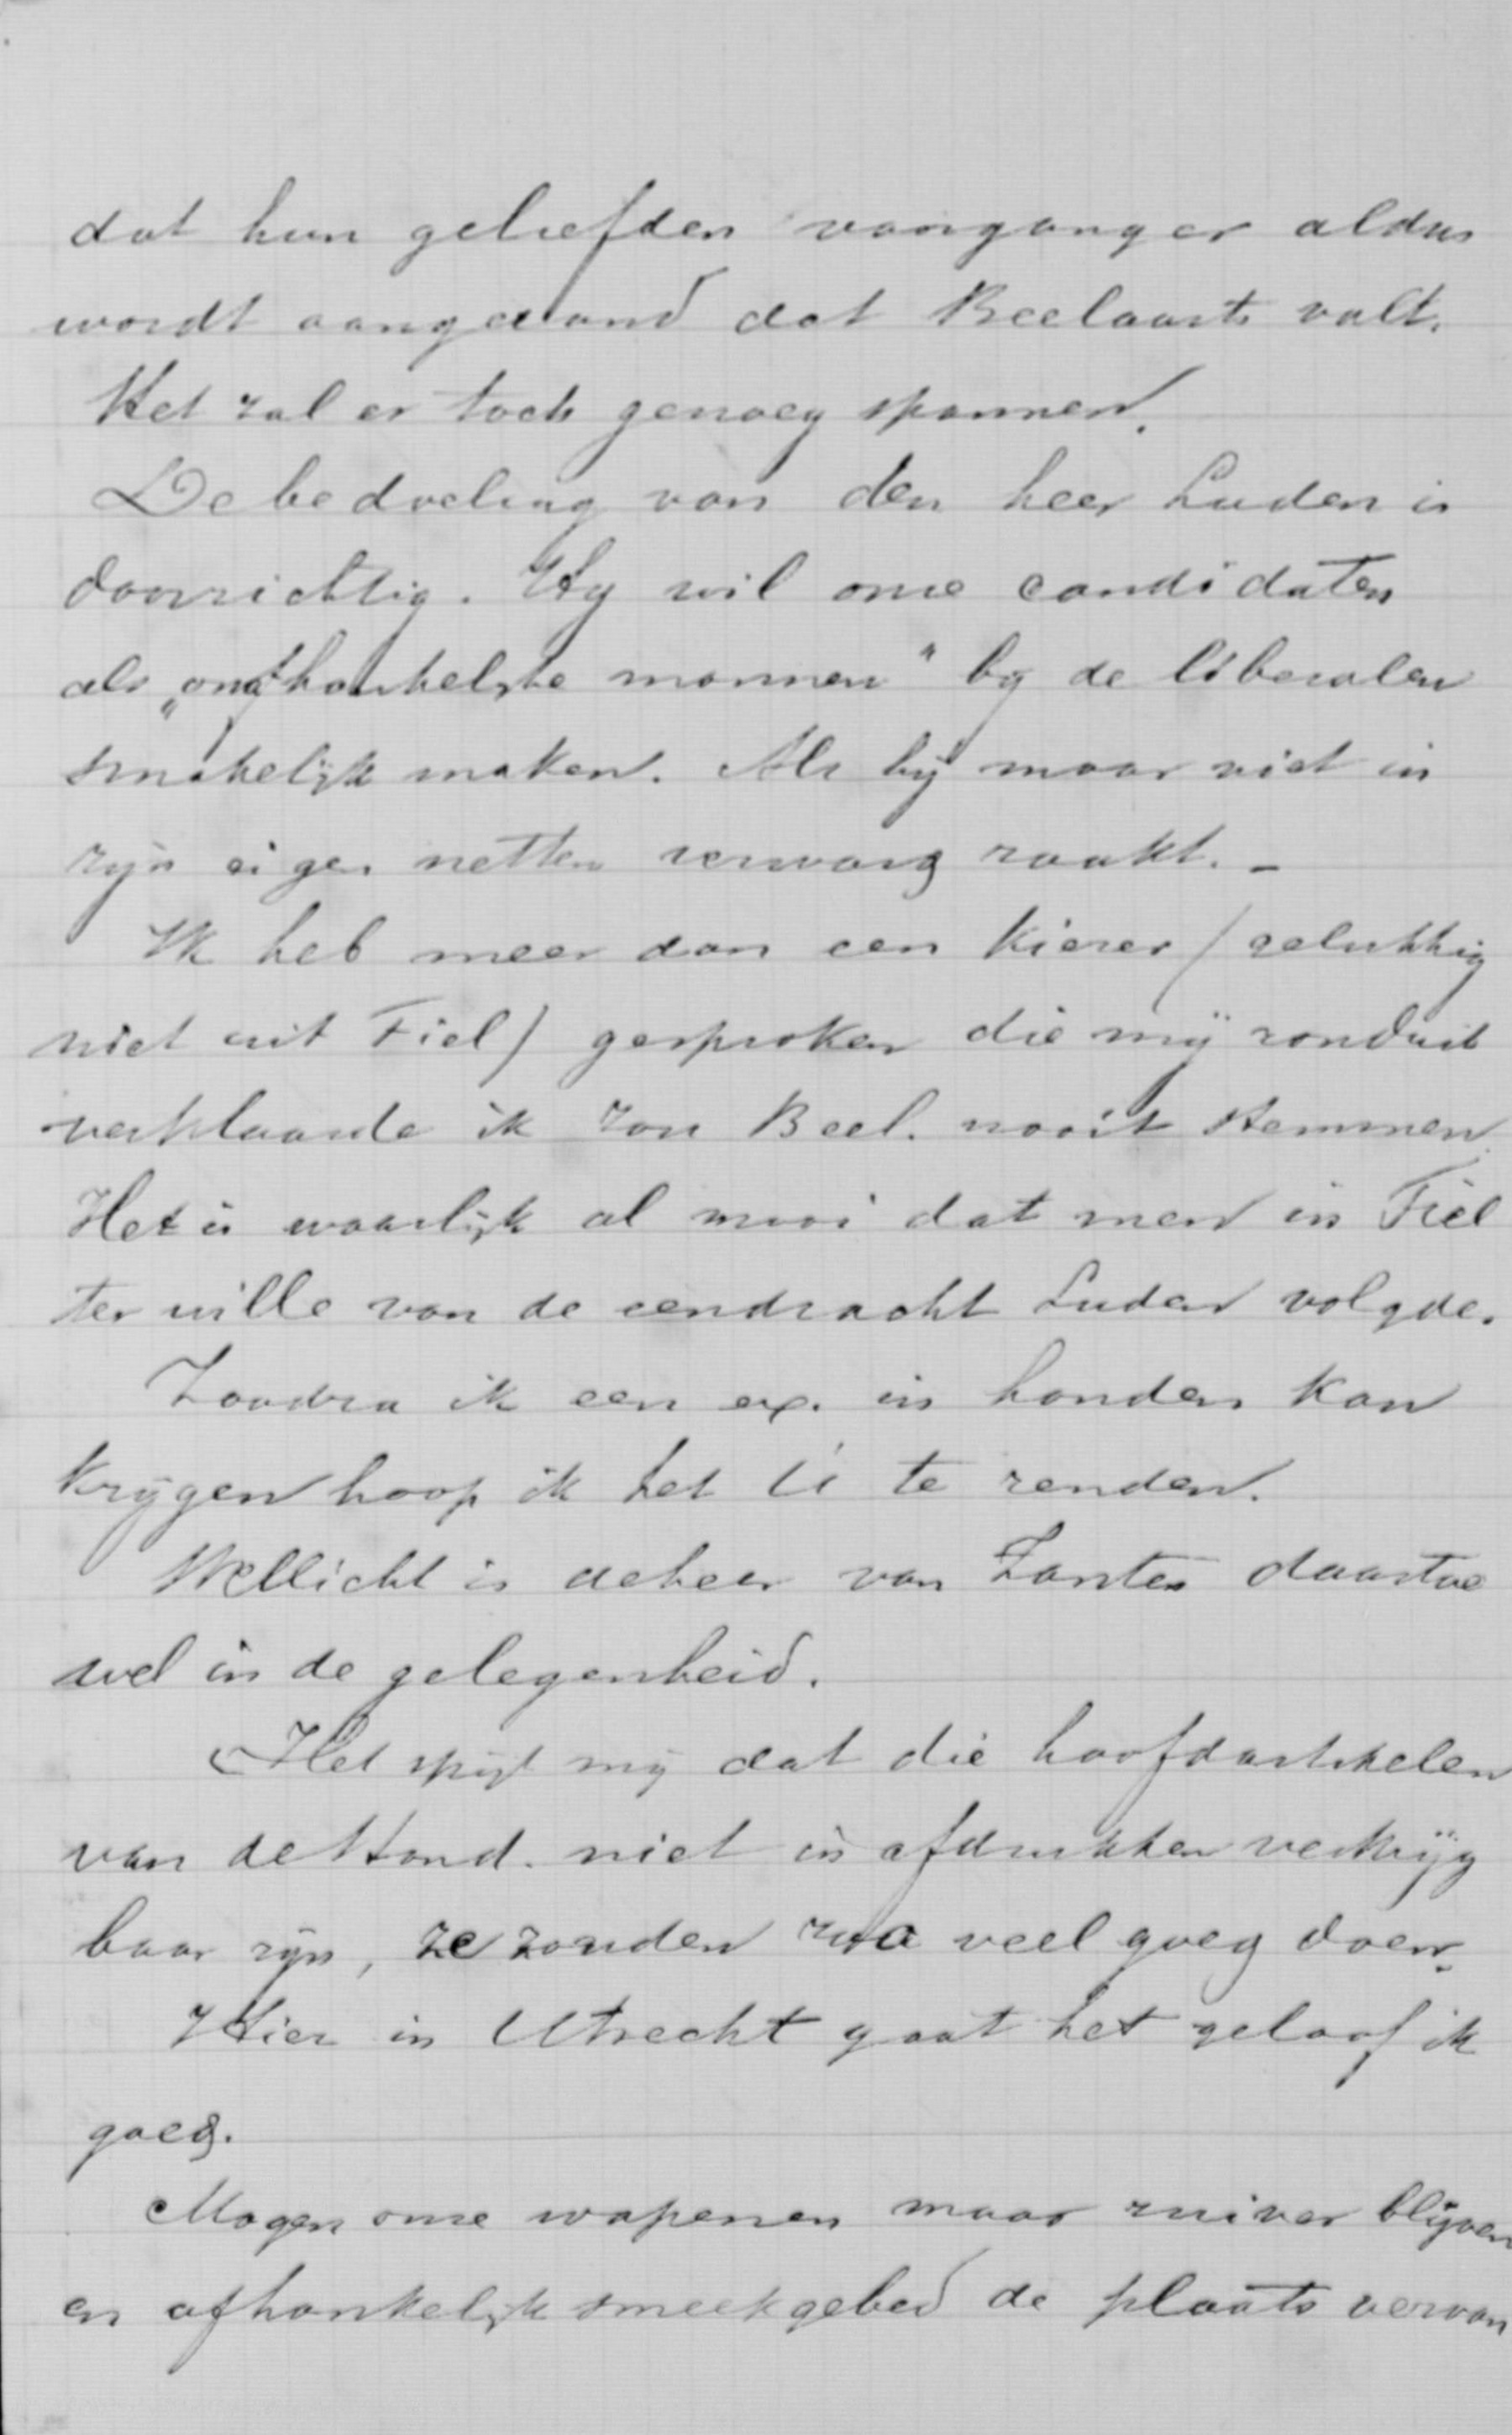 dat hun geliefden voorganger aldus
wordt aangerand dat Beelaarts valt.
Het zal er toch genoeg spannen.
De bedoeling van den heer Luden is
doorzichtig. Hy wil onze candidaten
als „onafhankelyke mannen" by de liberalen
smakelijk maken. Als hij maar niet in
zijn eigen netten verward raakt. –
Ik heb meer dan een kiezer (gelukkig
niet uit Tiel) gesproken die mij ronduit
verklaarde ik zou Beel. nooit stemmen.
Het is waarlijk al mooi dat men in Tiel
ter wille van de eendracht Luden volgde.
Zoodra ik een ex. in handen kan
krijgen hoop ik het U te zenden.
Wellicht is de heer van Zanten daartoe
wel in de gelegenheid.
Het spijt mij dat die hoofdartikelen
van de Stand. niet in afdrukken verkrijg
baar zijn, ze zouden zoo veel goeg doen.
Hier in Utrecht gaat het geloof ik
goed.
Mogen onze wapenen maar zuiver blijven
en afhankelijk smeekgebed de plaats vervan